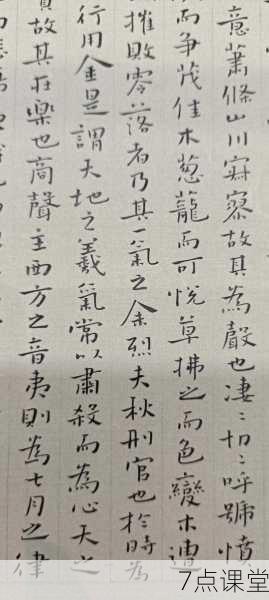 意蕭條山川寂寥故其為聲也淒〻切〻呼號憤
而爭茂佳木葱蘢而可悅草拂之而色變木遭
摧敗零落者乃其一氣之余烈夫秋刑官也於時為
行用金是謂天地之義氣常以肅殺而為心天之
實故其在樂也商聲主西方之音夷則為七月之律
7点课堂